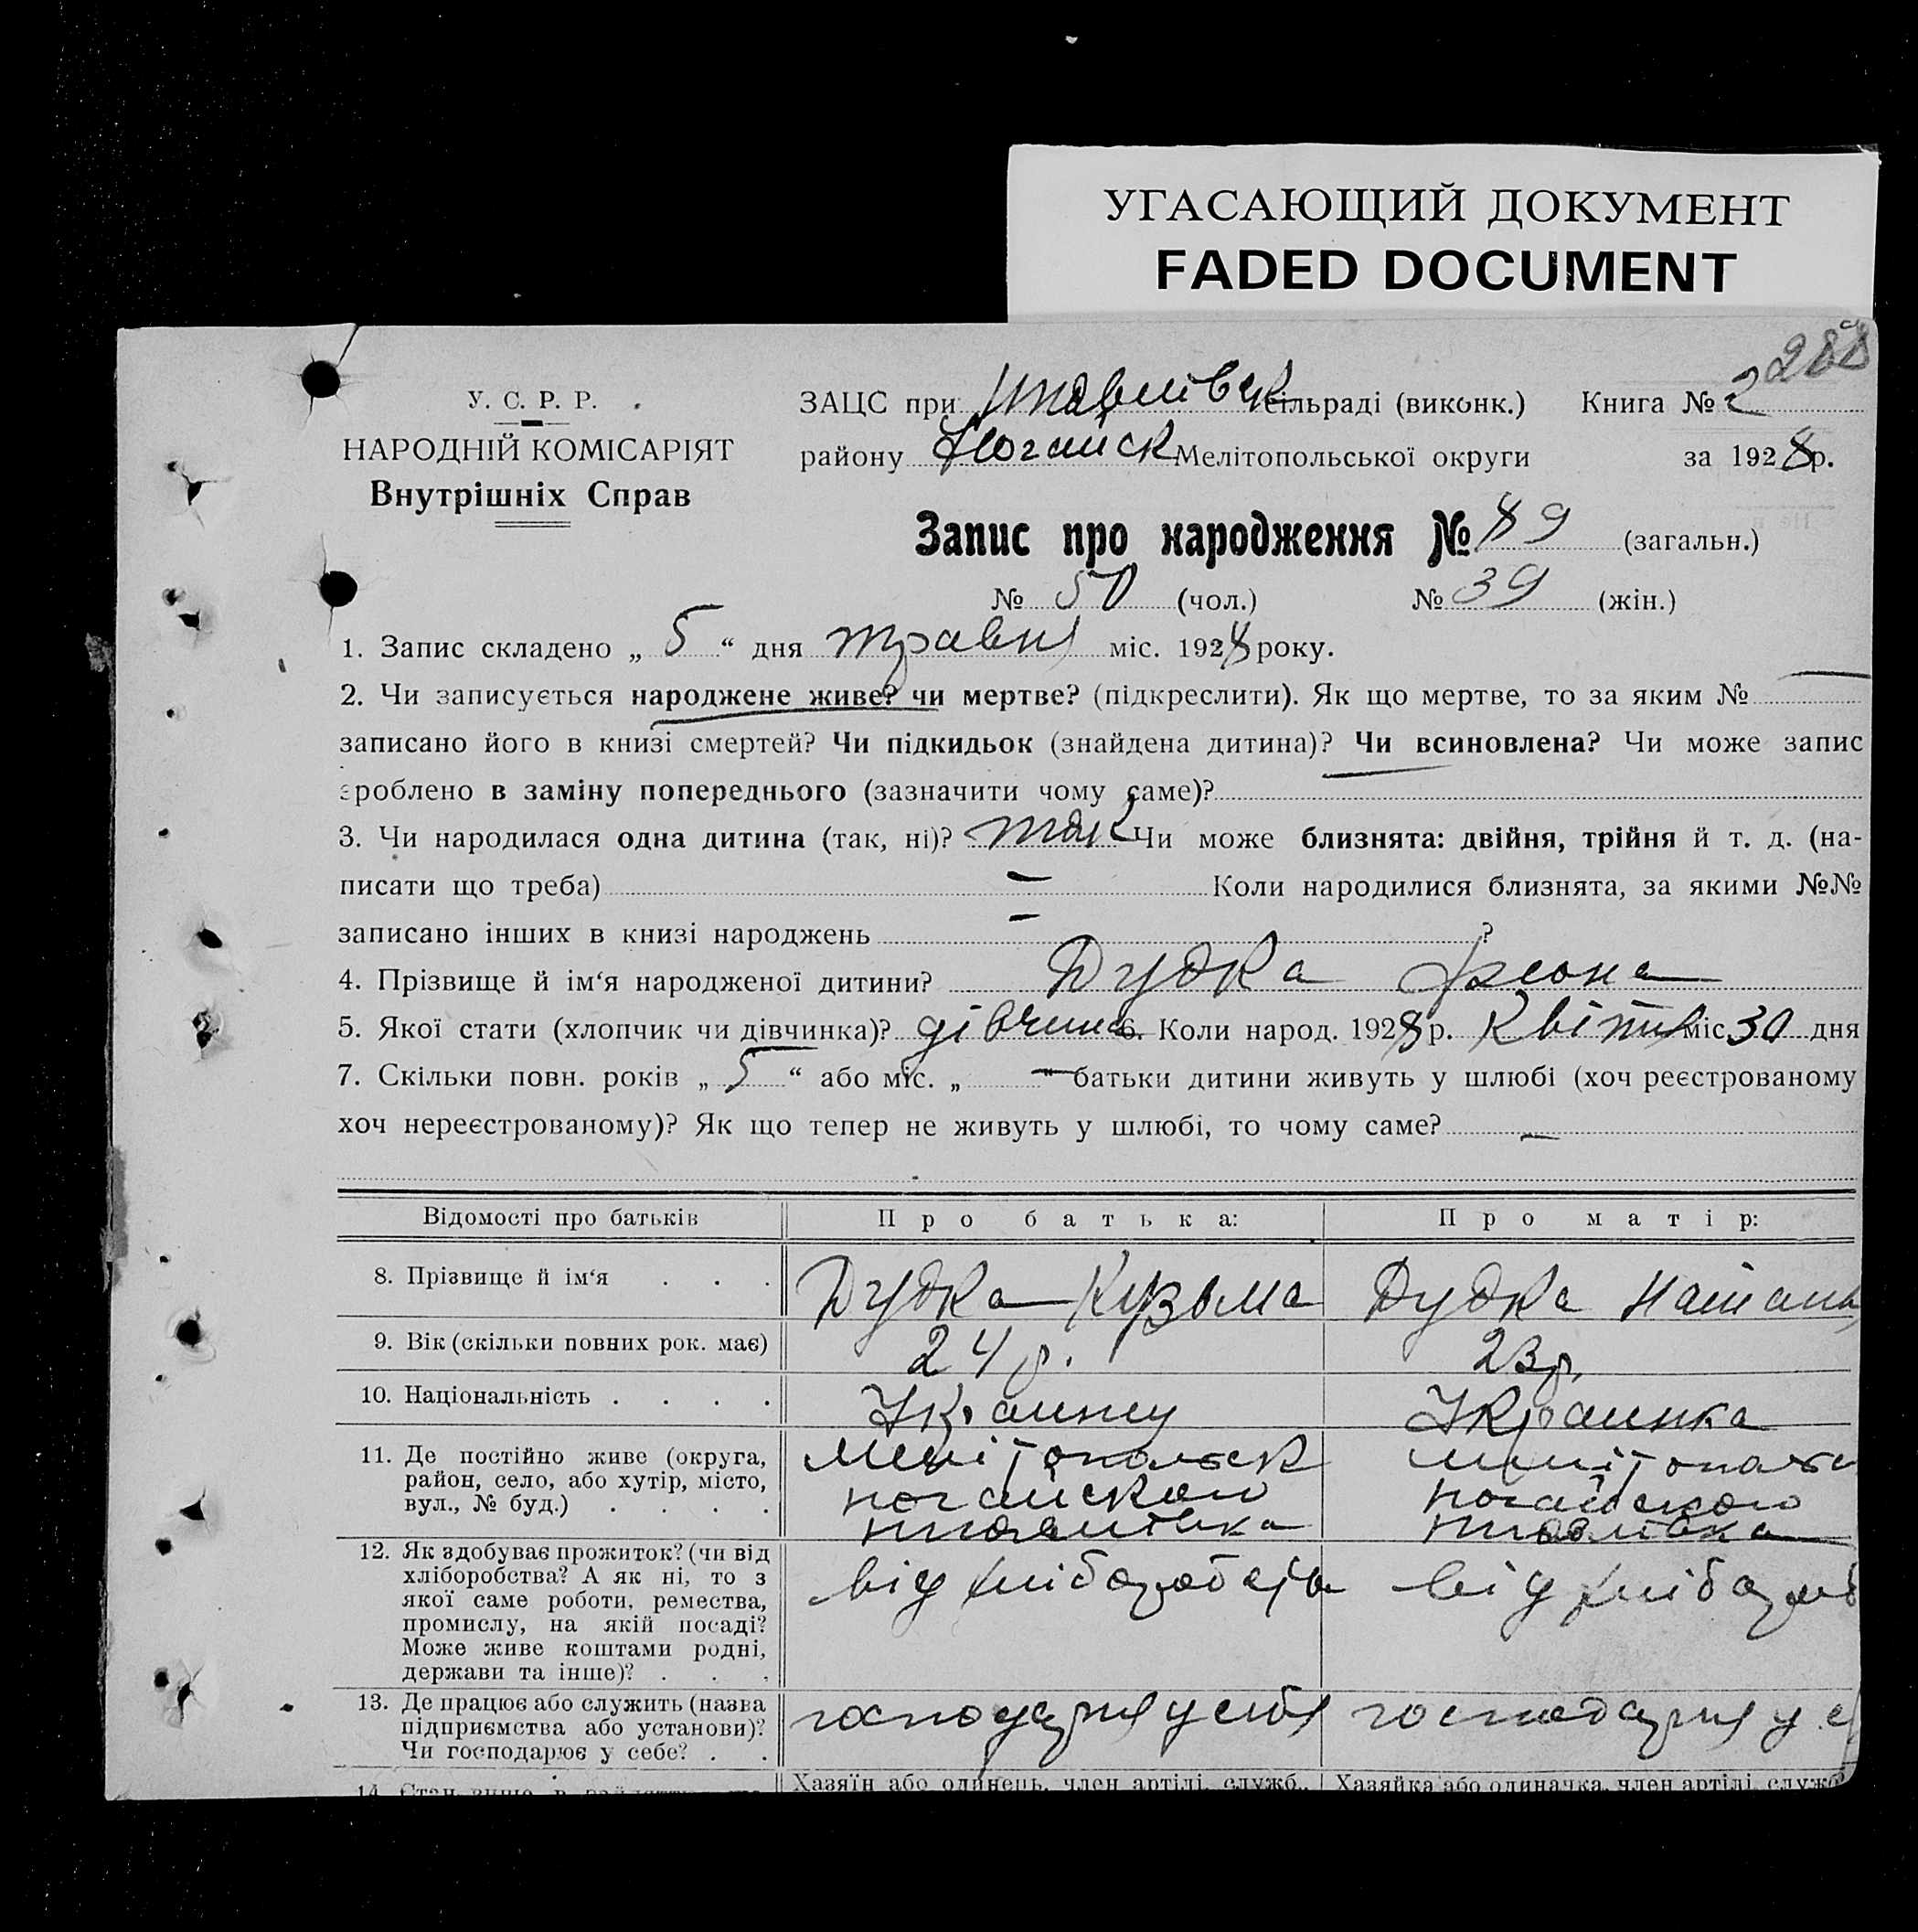 УГАСАЮЩИЙ ДОКУМЕНТ
FADED DOCUMENT
288
У. С. Р. Р.
НАРОДНІЙ КОМІСАРІЯТ
Внутрішніх Справ
ЗАЦС при сільраді (виконк.) Книга № 2
району Ногайск Мелітопольської округи за 1928 р.
Запис про народження № 89 (загальн.)
№ 50 (чол.) № 39 (жін.)
1. Запис складено „ 5 “ дня травня міс. 1928 року.
2. Чи записується народжене живе? чи мертве? (підкреслити). Як що мертве, то за яким №
записано його в книзі смертей? Чи підкидьок (знайдена дитина)? Чи всиновлена? Чи може запис
зроблено в заміну попереднього (зазначити чому саме)?
3. Чи народилася одна дитина (так, ні)? так Чи може близнята: двійня, трійня й т. д. (на-
писати що треба) — Коли народилися близнята, за якими №№
записано інших в книзі народжень — ?
4. Прізвище й ім‘я народженої дитини? Дудка
5. Якої стати (хлопчик чи дівчинка)? дівчина 6. Коли народ. 1928 р. Квітня міс. 30 дня
7. Скільки повн. років „ 5 “ або міс. „ — “ батьки дитини живуть у шлюбі (хоч реєстрованому
хоч нереєстрованому)? Як що тепер не живуть у шлюбі, то чому саме? —
Відомості про батьків Про батька: Про матір:
8. Прізвище й ім‘я . . . Дудка Кузьма Дудка
9. Вік (скільки повних рок. має) 24 р. 23 р.
10. Національність . . . . Українец Українка
11. Де постійно живе (округа, Мелітопольск Мелітопольск
район, село, або хутір, місто, ногайского ногайского
вул., № буд.) . . . .
12. Як здобуває прожиток? (чи від
хліборобства? А як ні, то з від хліборобства від хлібороб
якої саме роботи, ремества,
промислу, на якій посаді?
Може живе коштами родні,
держави та інше)? . . .
13. Де працює або служить (назва господарня у себя господарня у с
підприємства або установи)?
Чи господарює у себе? . .
Хазяїн або одинець, член артілі, служб., Хазяйка або одиначка, член артілі, служб